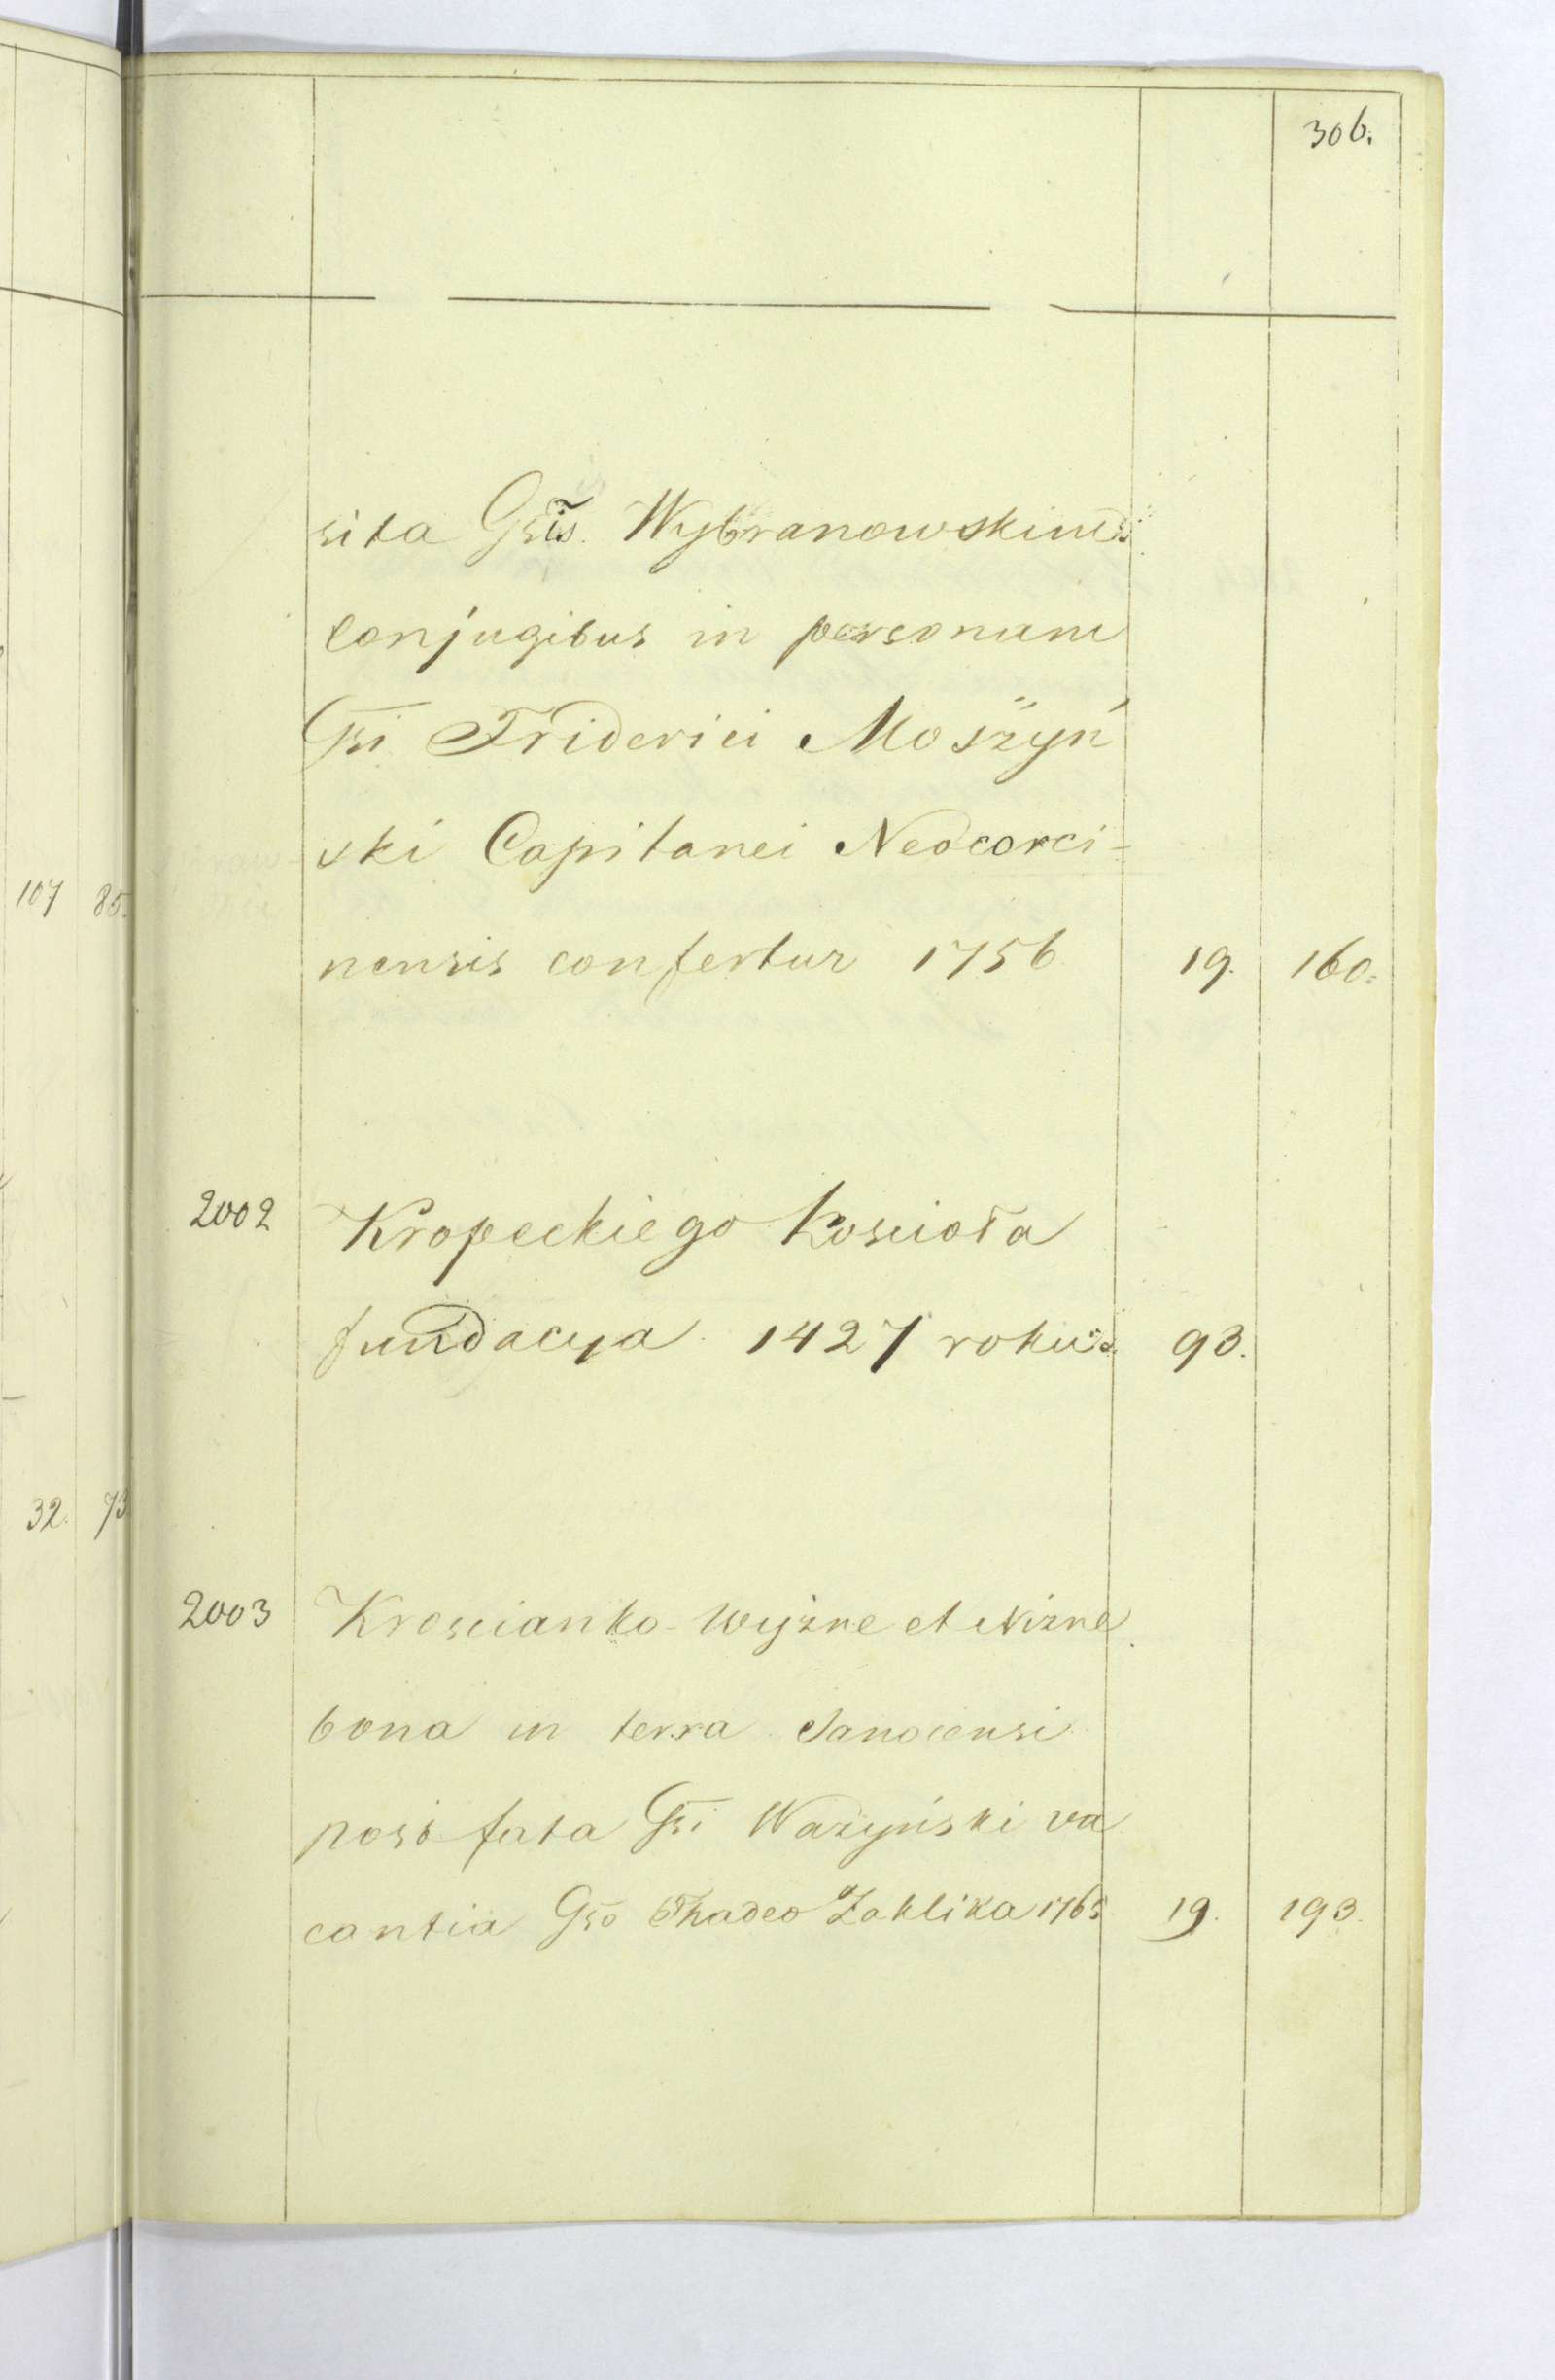 306.
sita Gsis. Wybranowskim
conjugibus in personam
Gsi Friderici Moszyń
ski Capitanei Neocorci-
nensis confertur 1756 19. 160.
107 85.
2002 Kropeckiego koscioła
fundacya 1427 roku 93.
32. 73
2003 Kroscianko wyżne et Niżne
bona in terra Sanocensi
post fata Gsi Wazyński va
cantia Gso Thadeo Zaklika 1765 19. 193.